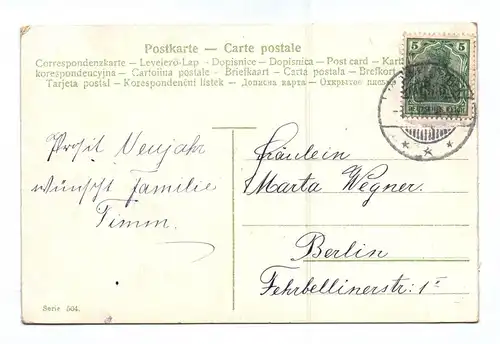 Postkarte — Carte postale
Correspondenzkarte – Levelező-Lap – Dopisnice – Dopisnica – Post card – Karta
korespondencyjna – Cartolina postale – Briefkaart – Carta postala – Brefkort
Tarjeta postal – Korespondenční lístek – Дописна карта – Открытое
5 5
Prosit Neujahr
wünscht Familie
Timm.
Fräulein
Marta Wegner.
Berlin
Fehrbellinerstr: 1
Serie 504.